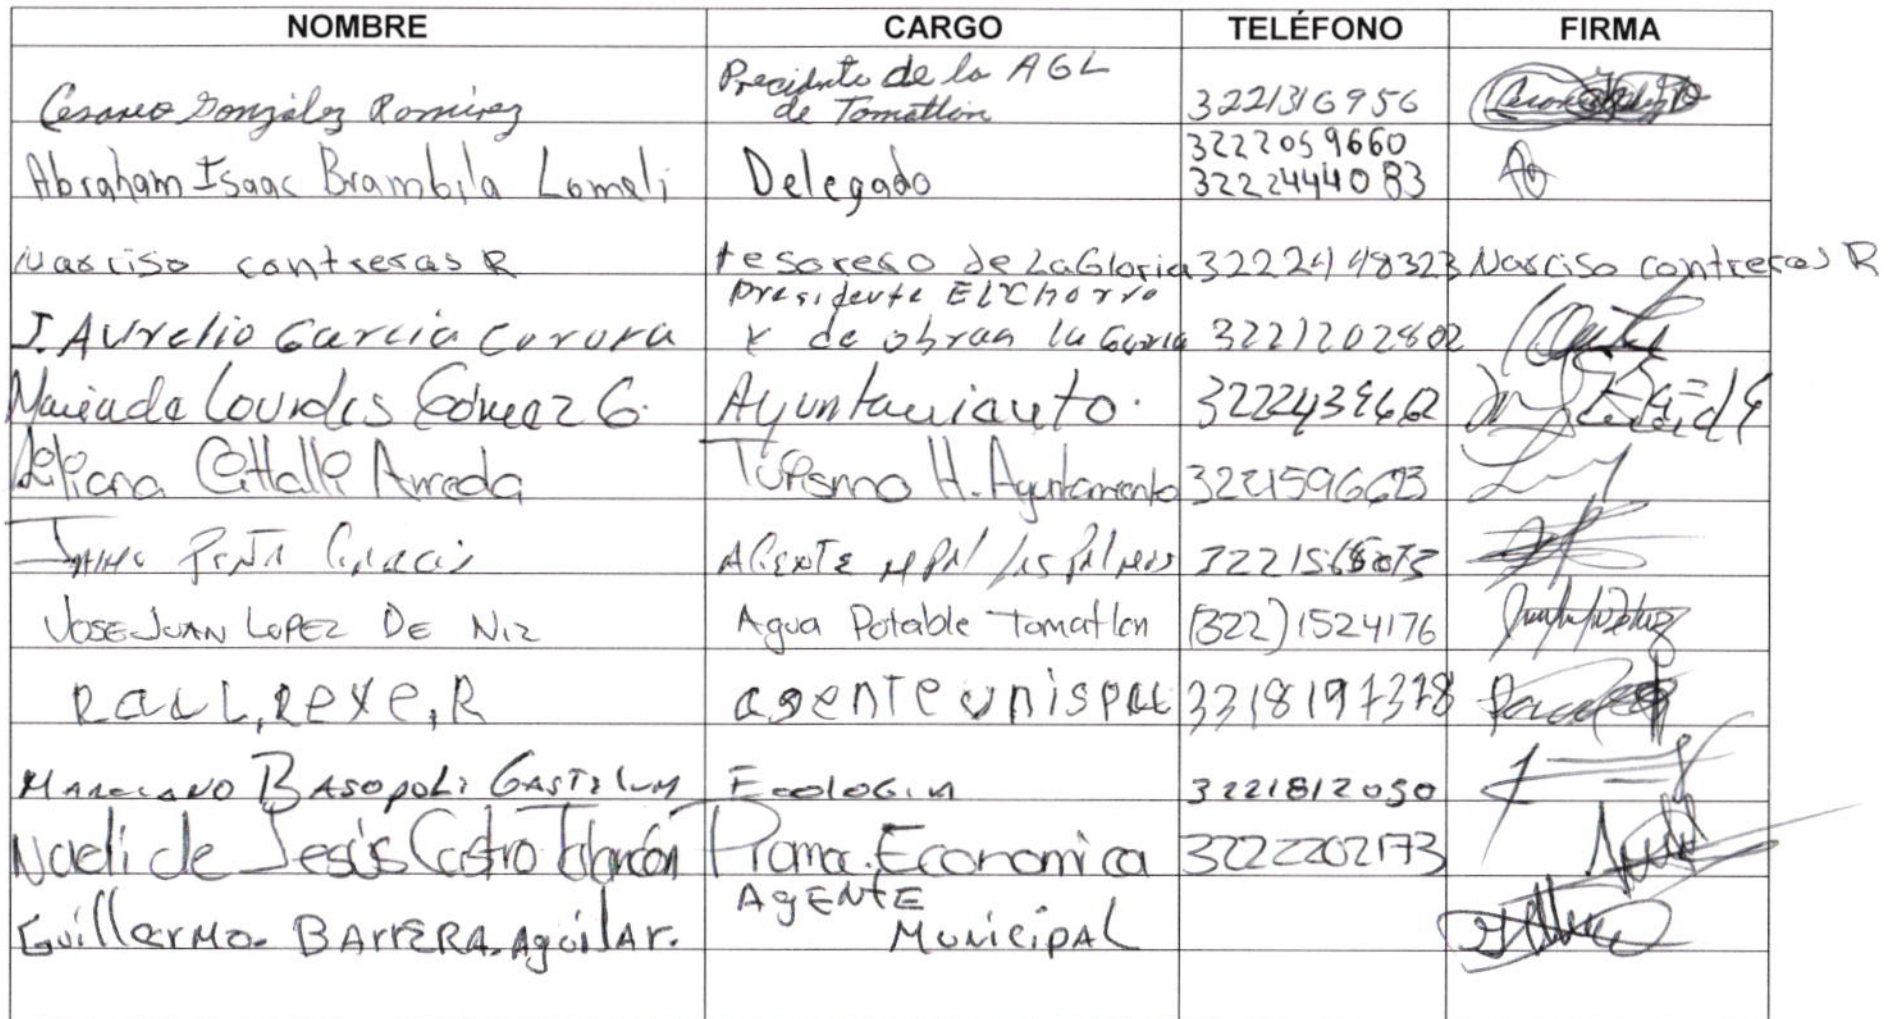 NOMBRE CARGO TELÉFONO FIRMA
Cesareo González Ramirez Precidente de la AGL de Tomatlán 3221316956
Abraham Isaac Brambila Lomeli Delegado 3222059660
3222444083
Narciso contreras R tesorero de La Gloria 3222448323 Narciso contreras R
J. Aurelio Garcia Corora presidente El Chorro
y de obras la Gloria 3221202802
Maria de Lourdes Gómez G. Ayuntamiento. 3222439662
Liliana Arreola Turismo H. Ayuntamiento 3221596623
Jaime Peña Garcia Agente Mpal las Palmas
Jose Juan Lopez De Niz Agua Potable Tomatlan (322)1524176
Raul, Reye, R agente unispal 3318197378
Marciano Basopoli Gastelum Ecologia 3221812050
Naeli de Jesús Castro Prom. Economica 3222202173
Guillermo. BArrERA. AguilAr. AgENtE
MunicipAL